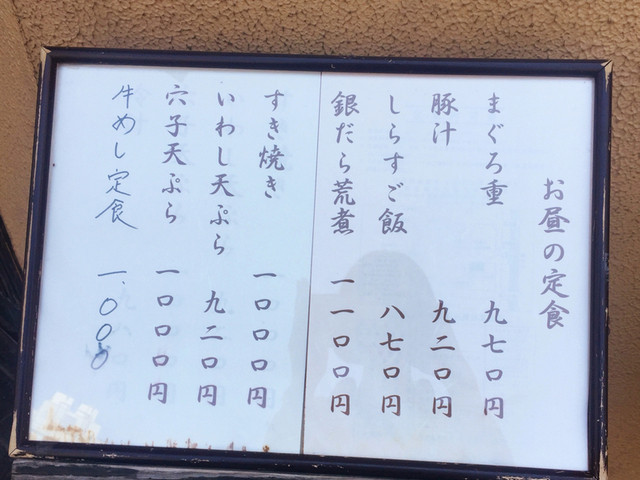 お昼の定食
まぐろ重 九七〇円
豚汁 九二〇円
しらすご飯 八七〇円
銀だら荒煮 一一〇〇円
すき焼き 一〇〇〇円
いわし天ぷら 九二〇円
穴子天ぷら 一〇〇〇円
牛めし定食 一、〇〇〇